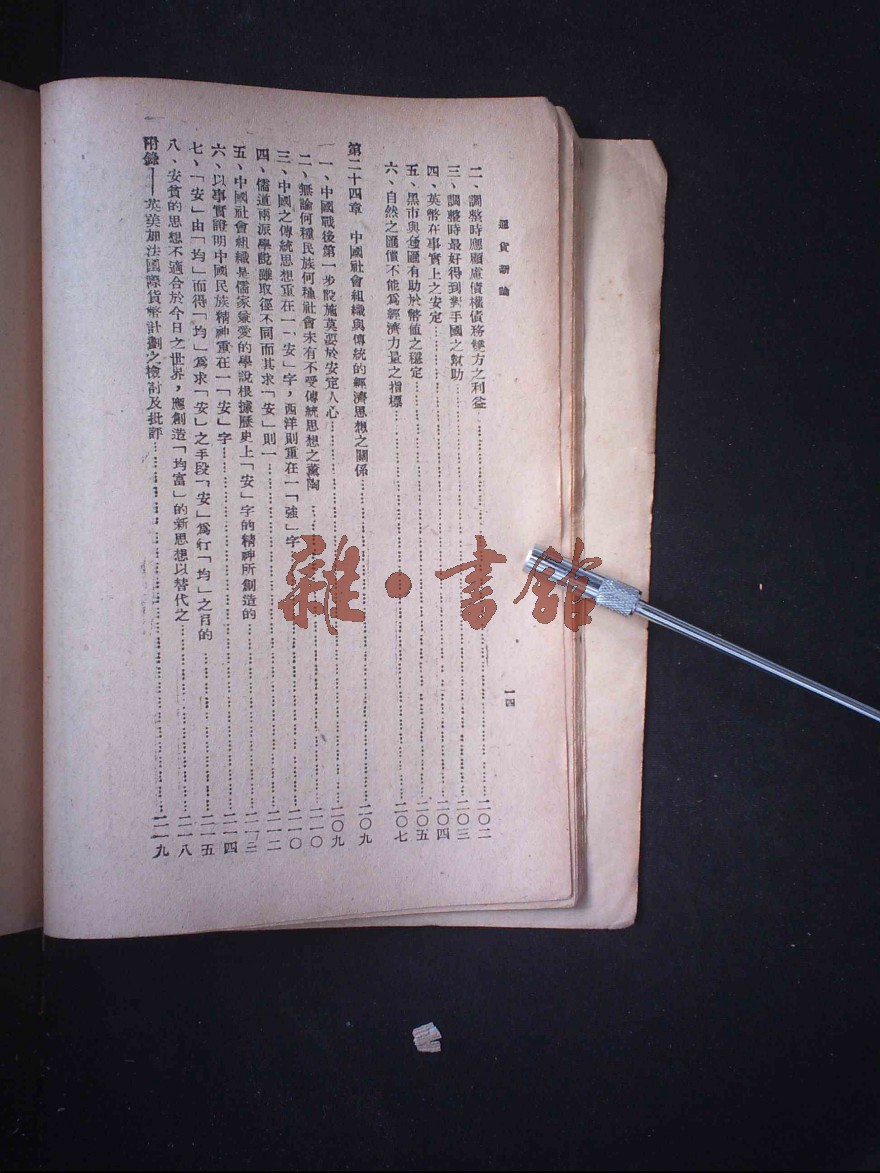 通貨新論
一四
二、調整時應顧慮債權債務雙方之利益……二〇二
三、調整時最好得到對手國之幫助……二〇三
四、英幣在事實上之安定……二〇四
五、黑市與僑匯有助於幣值之穩定……二〇五
六、自然之匯價不能爲經濟力量之指標……二〇七
第二十四章　中國社會組織與傳統的經濟思想之關係……二〇九
一、中國戰後第一步設施莫要於安定人心……二〇九
二、無論何種民族何種社會未有不受傳統思想之薰陶……二一〇
三、中國之傳統思想重在一「安」字，西洋則重在一「強」字……二一〇
四、儒道兩派學說雖取徑不同而其求「安」則一……二一二
五、中國社會組織是儒家兼愛的學說根據歷史上「安」字的精神所創造的……二一三
六、以事實證明中國民族精神重在一「安」字……二一四
七、「安」由「均」而得「均」爲求「安」之手段「安」爲行「均」之目的……二一五
八、安貧的思想不適合於今日之世界，應創造「均富」的新思想以替代之……二一八
附錄——英美加法國際貨幣計劃之檢討及批評……二一九
雜·書館